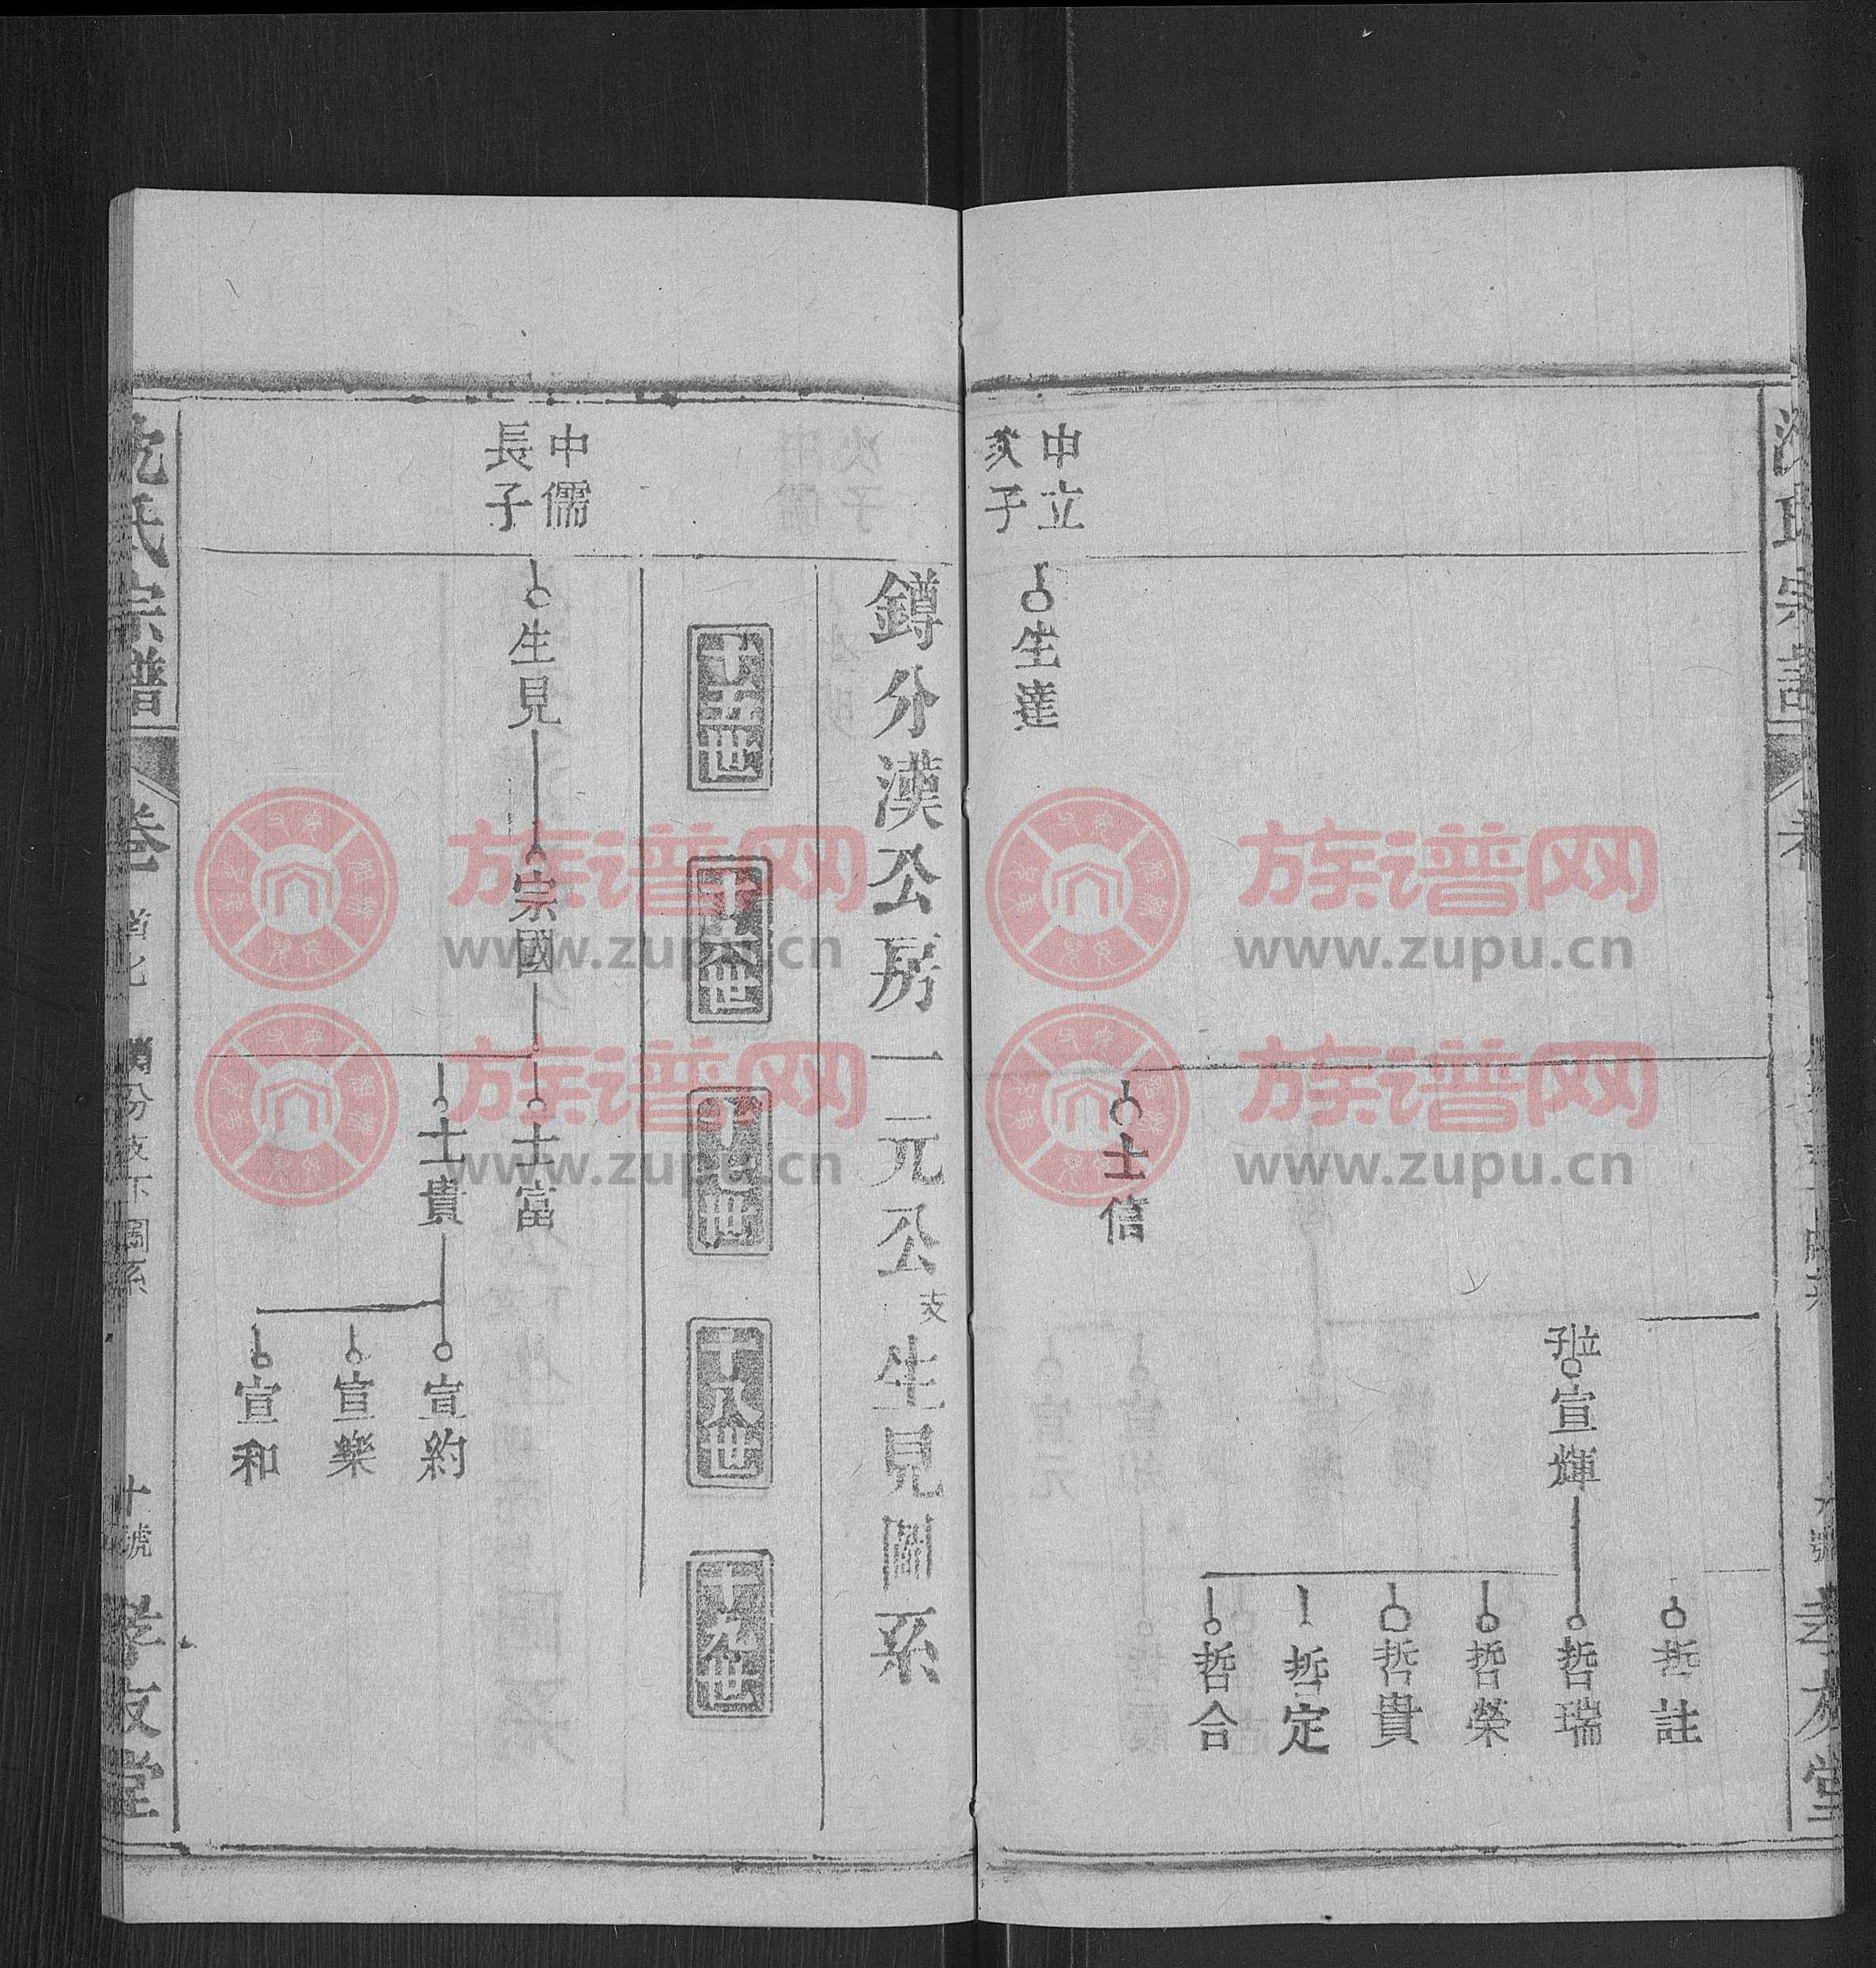 中立
次子
生達
士信
孖立
宣輝
哲註
哲瑞
哲榮
哲貴
哲定
哲合
鐏分漢公房一元公支生見圖系
十五世
十六世
十七世
十八世
十九世
中儒
長子
生見
宗國
士富
士貴
宣約
宣樂
宣和
沈氏宗譜
卷
十號
孝友堂
族谱网
www.zupu.cn
族谱网
www.zupu.cn
族谱网
www.zupu.cn
族谱网
www.zupu.cn